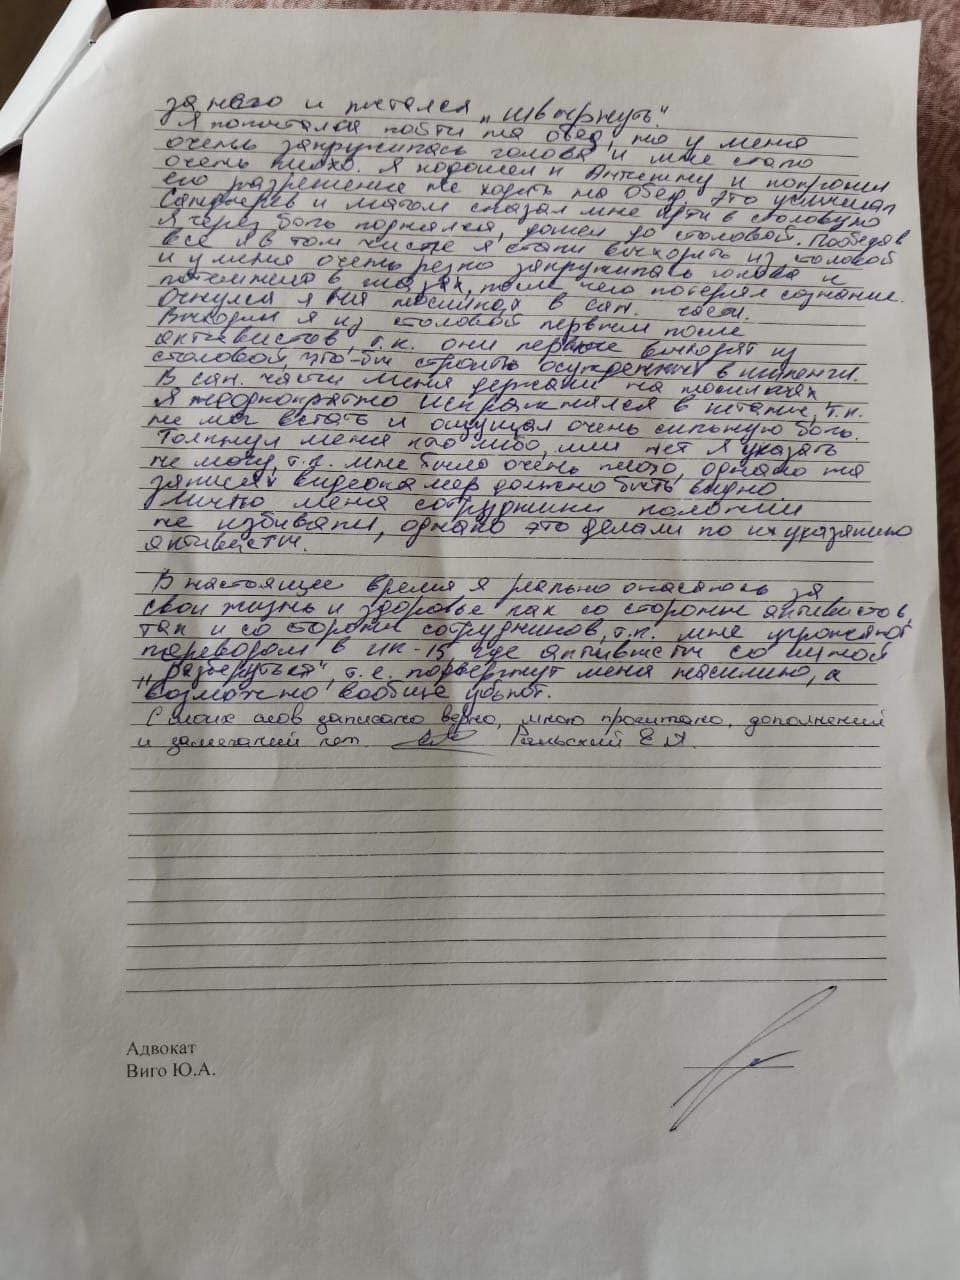 за него и пытался „швырнуть"
Я попытался пойти на обед, но у меня
очень закружилась голова и мне стало
очень плохо. Я подошел к и попросил
его разрешение не ходить на Обед, это услышал
и матом сказал мне идти в столовую
Я через боль поднялся, дошел до столовой. Пообедав
все и я в том числе я стали выходить из столовой
и у меня очень резко закружилась голова и
потемнело в глазах, после чего потерял сознание.
Очнулся я на носилках в сан. части.
Выходил я из столовой первым после
активистов, т.к. они первые выходят из
столовой, что-бы строить осужденных в шеренги.
В сан. части меня держали на носилках
Я неоднократно испражнялся в штаны, т.к.
не мог встать и ощущал очень сильную боль.
Толкнул меня кто либо, или нет я указать
не могу, т.к. мне было очень плохо, однако на
записях видеокамер должно быть видно.
Лично меня сотрудники колонии
не избивали, однако это делали по их указанию
активисты.
В настоящее время я реально опасаюсь за
свои жизнь и здоровье как со стороны активистов,
так и со стороны сотрудников, т.к. мне угрожают
переводом в ИК-15 где активисты со мной
„разберутся", т.е. подвергнут меня насилию, а
возможно вообще убьют.
С моих слов записано верно, мною прочитано, дополнений
и замечаний нет. Е.
Адвокат
Виго Ю.А.